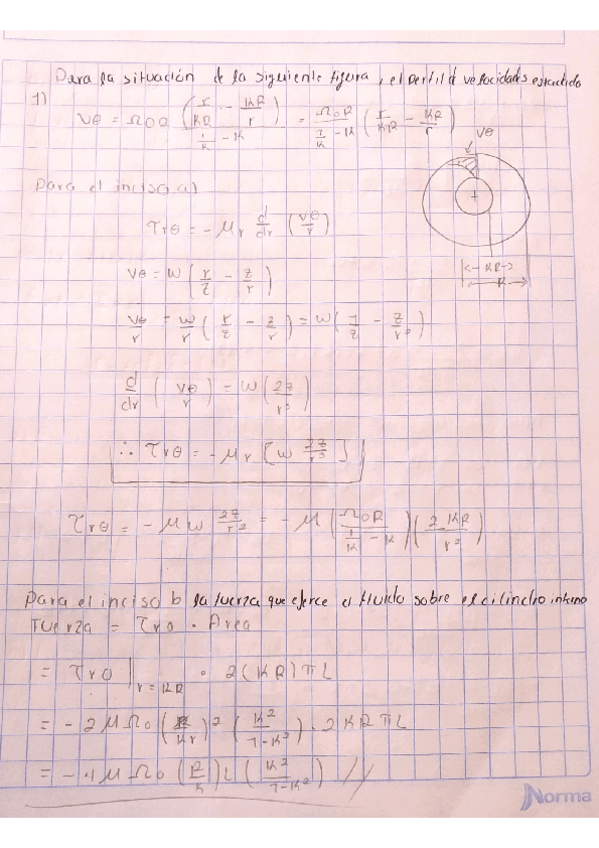 Para la situación de la siguiente figura, el perfil d velocidades estacidо
1) Vθ = Ω0R ( r/KR - KR/r ) / ( 1/K - K ) = Ω0R / ( 1/K - K ) ( r/KR - KR/r )
Vθ
Para el inciso a)
τrθ = -μr d/dr ( Vθ/r )
Vθ = W ( r/z - z/r )
<- KR ->
R
Vθ/r = W/r ( r/z - z/r ) = W ( 1/z - z/r² )
d/dr ( Vθ/r ) = W ( 2z/r³ )
∴ τrθ = -μr [ W 2z/r³ ]
τrθ = -μ W 2z/r² = -μ ( Ω0R / ( 1/K - K ) ) ( 2 KR / r² )
Para el inciso b la fuerza que ejerce el fluido sobre el cilindro interno
Fuerza = τrθ · Area
= τrθ | r = KR · 2(KR)πL
= -2μΩ0 ( R/Kr )² ( K²/1-K² ) · 2KRπL
= -4μΩ0 ( R/K ) L ( K²/1-K² ) //
Norma